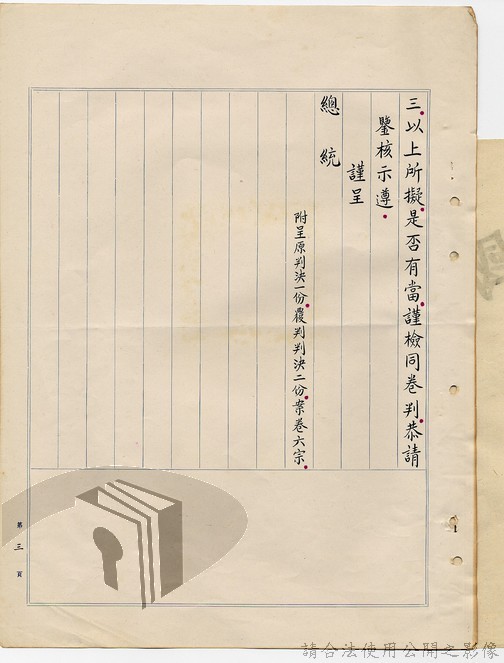 三、以上所擬，是否有當，謹檢同卷判，恭請
鑒核示遵。
謹呈
總統
附呈原判決一份，覆判判決二份，案卷六宗。
第三頁
請合法使用公開之影像